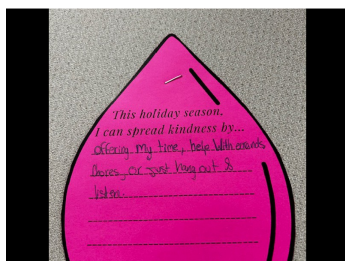 This holiday season,
I can spread kindness by...
offering my time, help with errands
chores, or just hang out &
listen.